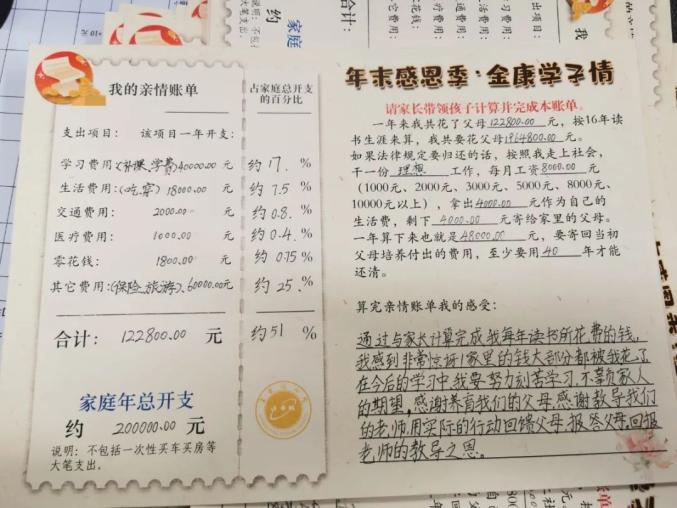 我的亲情账单
占家庭总开支
的百分比
支出项目: 该项目一年开支:
学习费用:(补课、学费)40000.00 元 约17. %
生活费用:(吃穿)18000.00 元 约7.5 %
交通费用: 2000.00 元 约0.8. %
医疗费用: 1000.00 元 约0.4. %
零花钱: 1800.00 元 约0.75 %
其它费用:(保险、旅游).60000.00元 约25. %
合计: 122800.00 元 约51 %
家庭年总开支
约 200000.00 元
说明:不包括一次性买车买房等
大笔支出。
年末感恩季·金康学子情
请家长带领孩子计算并完成本账单。
一年来我共花了父母122800.00元,按16年读
书生涯来算,我共要花父母1964800.00元。
如果法律规定要归还的话,按照我走上社会,
干一份 理想 工作,每月工资8000.00元
(1000元、2000元、3000元、5000元、8000元、
10000元以上),拿出4000.00元作为自己的
生活费,剩下 4000.00 元寄给家里的父母。
一年算下来也就是48000.00元,要寄回当初
父母培养付出的费用,至少要用 40 年才能
还清。
算完亲情账单我的感受:
通过与家长计算完成我每年读书所花费的钱,
我感到非常惊讶!家里的钱大部分都被我花了
在今后的学习中,我要努力刻苦学习.不辜负家人
的期望,感谢养育我们的父母.感谢教导我们
的老师.用实际的行动回馈父母.报答父母.回报
老师的教导之恩。